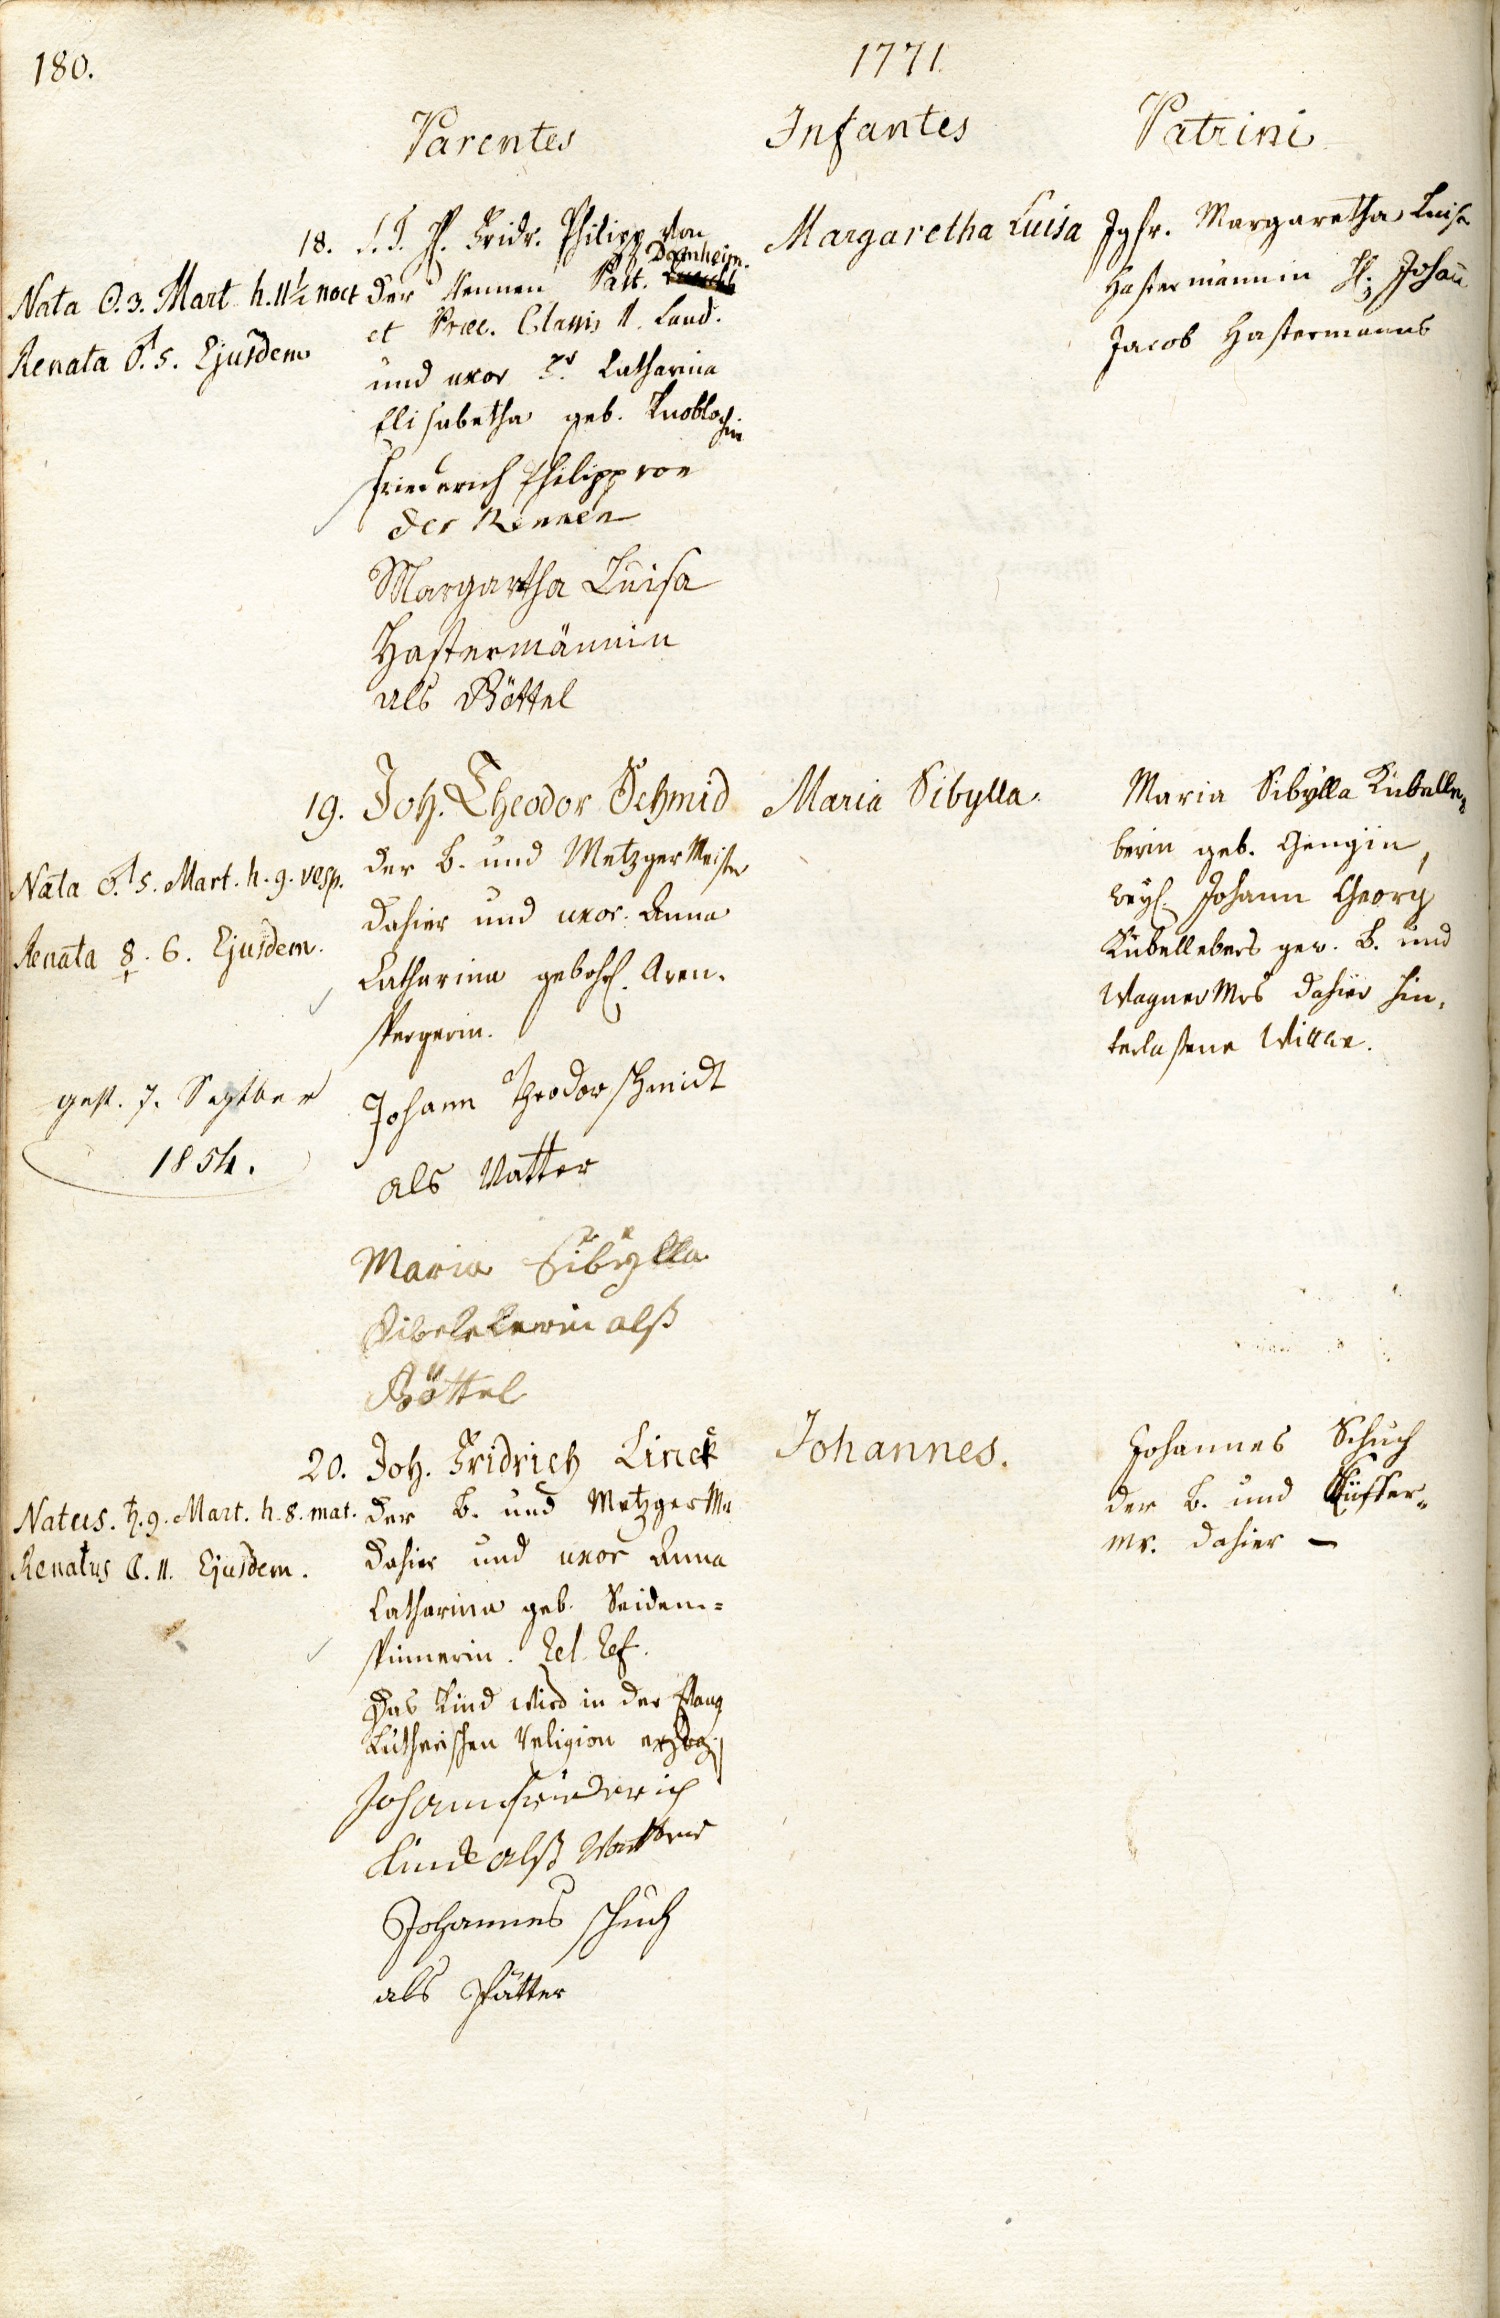 180.
1771.
Parentes
Infantes
Patrini
18. S. T. H. Fridr. Philipp von
Dornheim.
der Nennen Past.
et Præc. Classis II. Land.
und uxor Fr. Catharina
Elisabetha geb. Knoblochin
Nata ☉. 3. Mart. h. 11½ noct
Renata ♂. 5. Ejusdem
Friederich Philipp von
der Nennen
Margartha Luisa
Hastermännin
als Göttel
Margaretha Luisa
Jgfr. Margaretha Luisa
Hastermännin H. Johann
Jacob Hastermanns
19. Joh. Theodor Schmid
der B. und Metzger Meister
dahier und uxor. Anna
Catharina gebohr. Aren-
spergerin.
Nata ♂. 5. Mart. h. 9. vesp.
Renata ☿. 6. Ejusdem.
gest. 7. Septber
1854.
Johann Theodor schmidt
als Vatter
Maria Sibylla
Kibeleberin alß
Göttel
Maria Sibylla.
Maria Sibylla Kübelle-
berin geb. Gengin,
weyl. Johann Georg
Kübellebers gew. B. und
Wagner Mrs dahier hin-
terlaßene Wittwe.
20. Joh. Fridrich Linck
der B. und Metzger Mr
dahier und uxor Anna
Catharina geb. Seiden=
spinnerin. Rel. Ref.
Das Kind wird in der Evang
Lutherischen Religion erzog.
Natus. ♄. 9. Mart. h. 8. mat.
Renatus ☾. 11. Ejusdem.
Johann friederich
Linck alß Vatter
Johannes schuch
als Pfätter
Johannes.
Johannes Schuch
der B. und Küffer-
Mr. dahier —